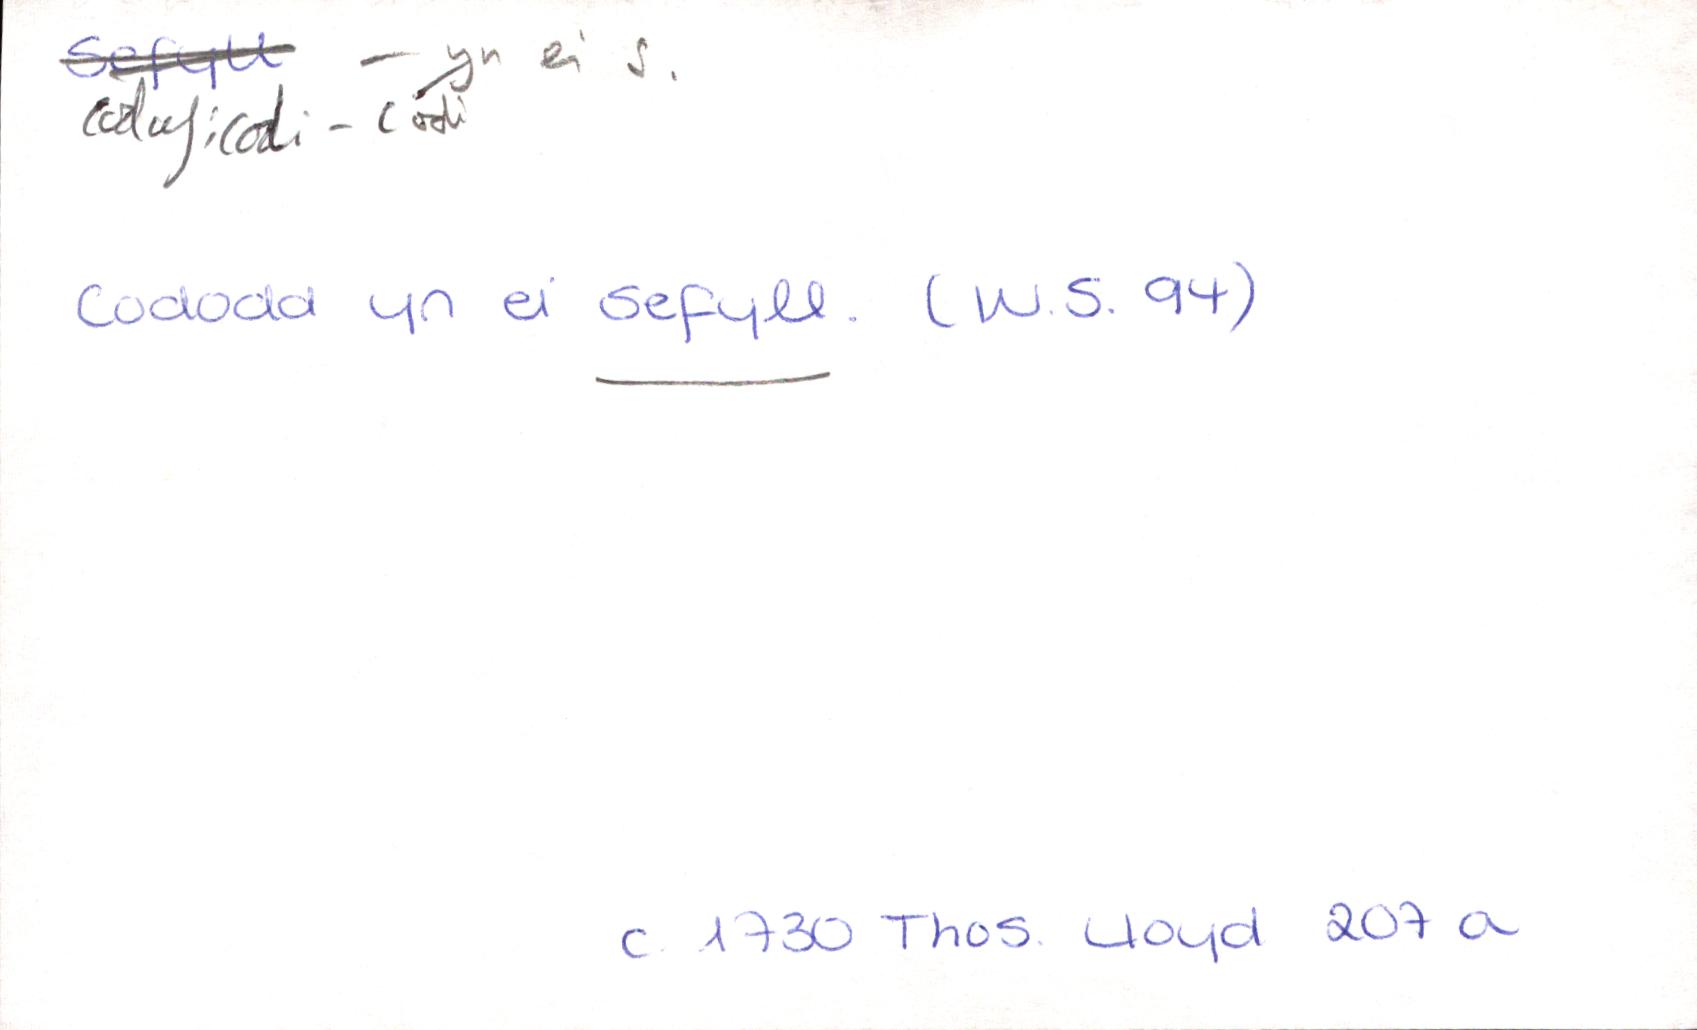 Sefyll — yn ei s.
codaf: codi - codi
Cododd yn ei sefyll. (W.S. 94)
c. 1730 Thos. Lloyd 207 a